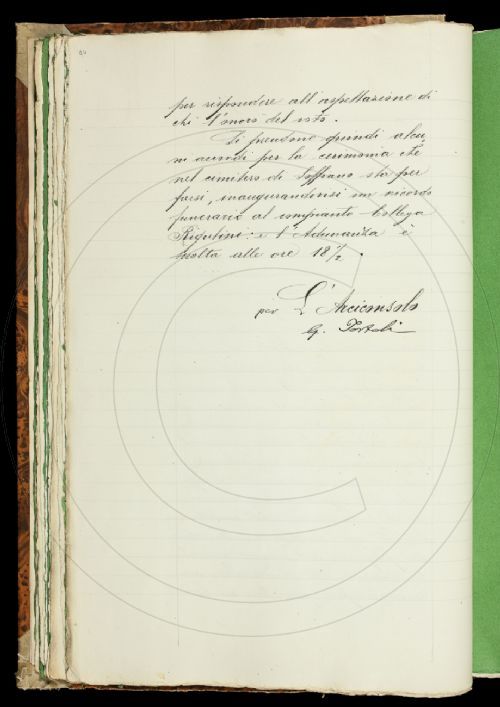 per rispondere all'aspettazione di
chi l'onorò del voto.
Si prendono quindi alcu
ni accordi per la cerimonia che
nel cimitero di Soffiano sta per
farsi, inaugurandovisi un ricordo
funerario al compianto Collega
Rigutini: e l'Adunanza è
sciolta alle ore 18 1/2.
per L'Arciconsolo
G.